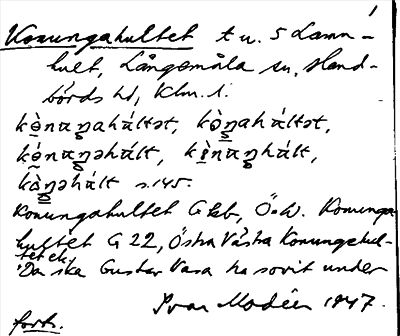 1
Konungahultet t u. 5 Lamn-
hult, Långemåla sn, Hand-
börds hd, Klm. l.
kò̤naŋahàltət, kɷ̀ŋahàltət,
kó̤naŋəhált, kò̤naŋhált,
kɷ̀ŋəhált s. 145.
Konungahultet Gkb, Ö o V. Konunga
hultet G 22, Östra Västra Konungehul-
tet ek.
'Da ska Gustav Vasa ha sovit under
Ivar Modéer 1947.
forts.